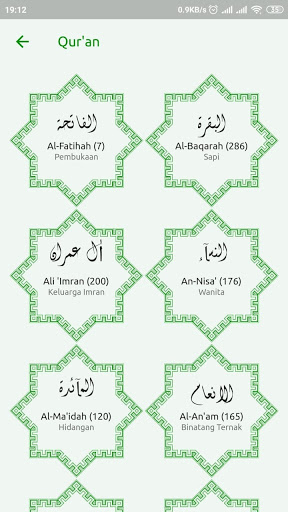 19:12
0.9KB/s
Qur'an
الفاتحة
Al-Fatihah (7)
Pembukaan
البقرة
Al-Baqarah (286)
Sapi
اٰل عمران
Ali 'Imran (200)
Keluarga Imran
النسآء
An-Nisa' (176)
Wanita
المآئدة
Al-Ma'idah (120)
Hidangan
الانعام
Al-An'am (165)
Binatang Ternak